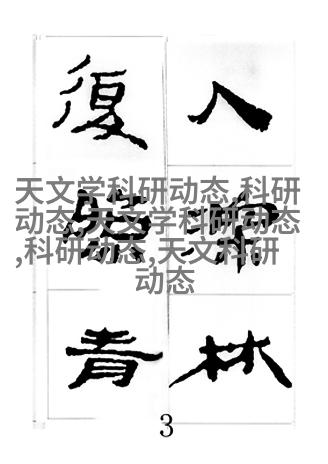 入深林
復照青
天文学科研动态,科研
动态,天文学科研动态
,科研动态,天文科研
动态
3